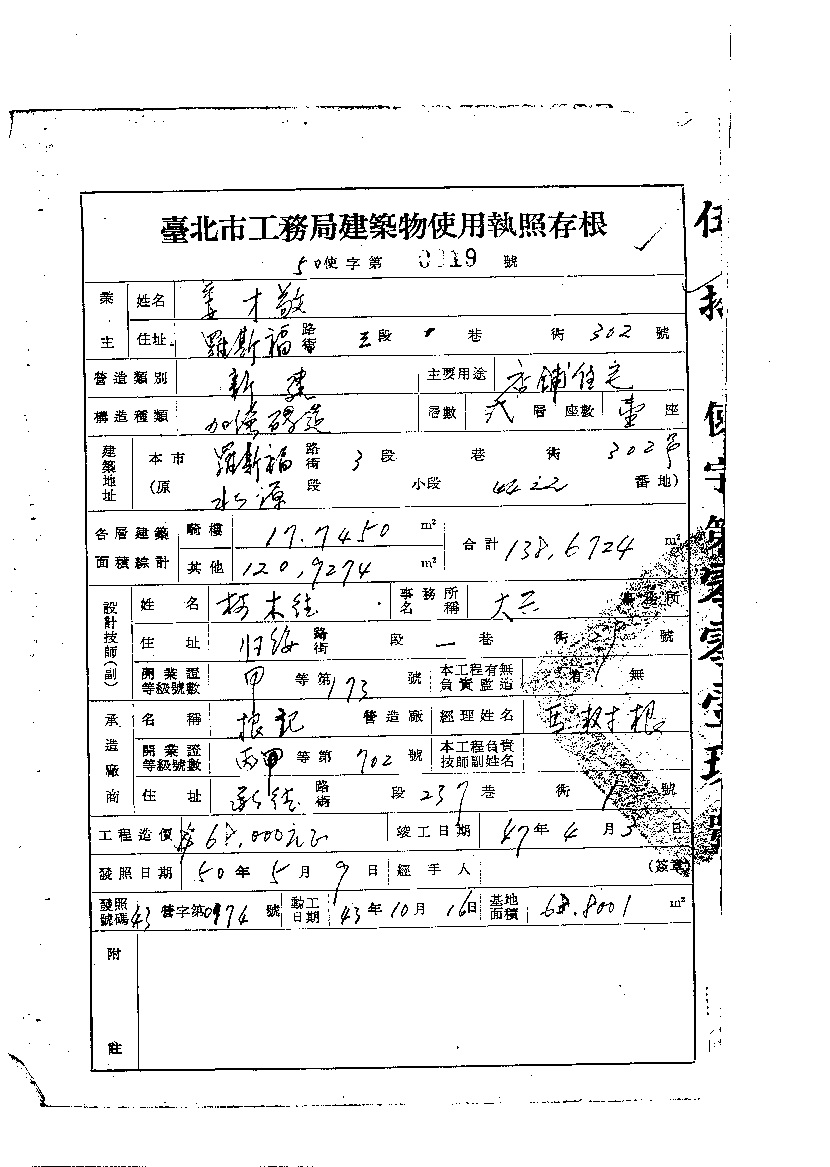 臺北市工務局建築物使用執照存根
50使字第 0019 號
業主 姓名 姜才敬
住址 羅斯福路街 三段 巷 街 302 號
營造類別 新建 主要用途 店鋪住宅
構造種類 加強磚造 層數 弍層 座數 壹座
建築地址 本市 羅斯福路街 3段 巷 街 302号
(原 水源段 小段 番地)
各層建築面積綜計 騎樓 17.7450 m² 合計 138.6724 m²
其他 120.9274 m²
設計技師(副) 姓名 柯木 事務所名稱 事務所
住址 归綏路街 段 一巷 街 號
開業證等級號數 甲等第173號 本工程有無負責監造 有 無
承造廠商 名稱 根記 營造廠 經理姓名 根
開業證等級號數 甲等第702號 本工程負責技師副姓名
住址 路街 段 237巷 街 1號
工程造價 68,000元 竣工日期 47年4月3日
發照日期 50年5月9日 經手人 (簽章)
發照號碼 43營字第0974號 動工日期 43年10月16日 基地面積 68.8001 m²
附註
伍拾 使字第零零壹玖號